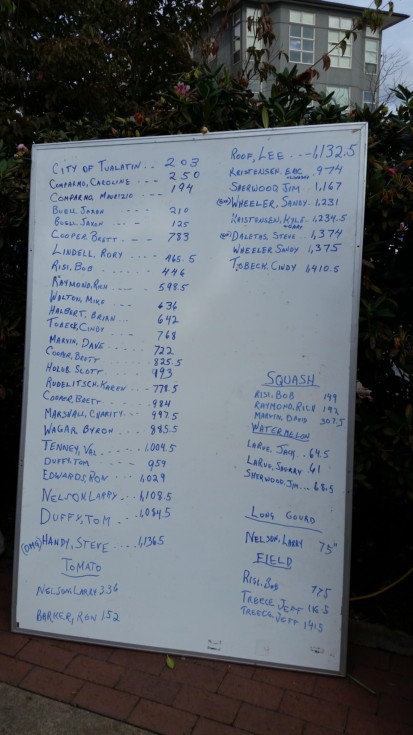 CITY OF TUALATIN... 203
COMPARMO, CAROLINE --- 250
COMPARMO, MAURIZIO --- 194
BUGLI, JARON ---- 210
BUGLI, JARON ---- 125
COOPER, BRETT ---- 783
LINDELL, RORY ---- 465.5
RISI, BOB ------ 446
RAYMOND, RICH ---- 598.5
WALTON, MIKE --- 636
HALBERT, BRIAN -- 642
TOBECK, CINDY ---- 768
MARVIN, DAVE ---- 722
COOPER, BRETT ---- 825.5
HOLUB, SCOTT ---- 993
RUDELITSCH, KAREN -- 778.5
COOPER, BRETT ---- 984
MARSHALL, CHARITY --- 997.5
WAGAR, BYRON ---- 885.5
TENNEY, VAL ---- 1,004.5
DUFFY, TOM ---- 959
EDWARDS, RON --- 1,029
NELSON, LARRY --- 1,108.5
DUFFY, TOM ---- 1,084.5
(DMG) HANDY, STEVE ---- 1,136.5
TOMATO
NELSON, LARRY 2.36
BARKER, RON 1.52
ROOF, LEE --- 1,132.5
KRISTENSEN, ERIC 974
SHERWOOD, JIM -- 1,167
WHEELER, SANDY. 1,231
KRISTENSEN, KYLE 1,234.5
DALETAS, STEVE. 1,374
WHEELER, SANDY 1,375
TOBECK, CINDY 1,410.5
SQUASH
RISI, BOB 149
RAYMOND, RICH 192
MARVIN, DAVE 307.5
WATERMELON
LARUE, JACK.. 64.5
LARUE, SHERRY 61
SHERWOOD, JIM... 68.5
LONG GOURD
NELSON, LARRY 75"
FIELD
RISI, BOB
TREECE JEFF
TREECE JEFF